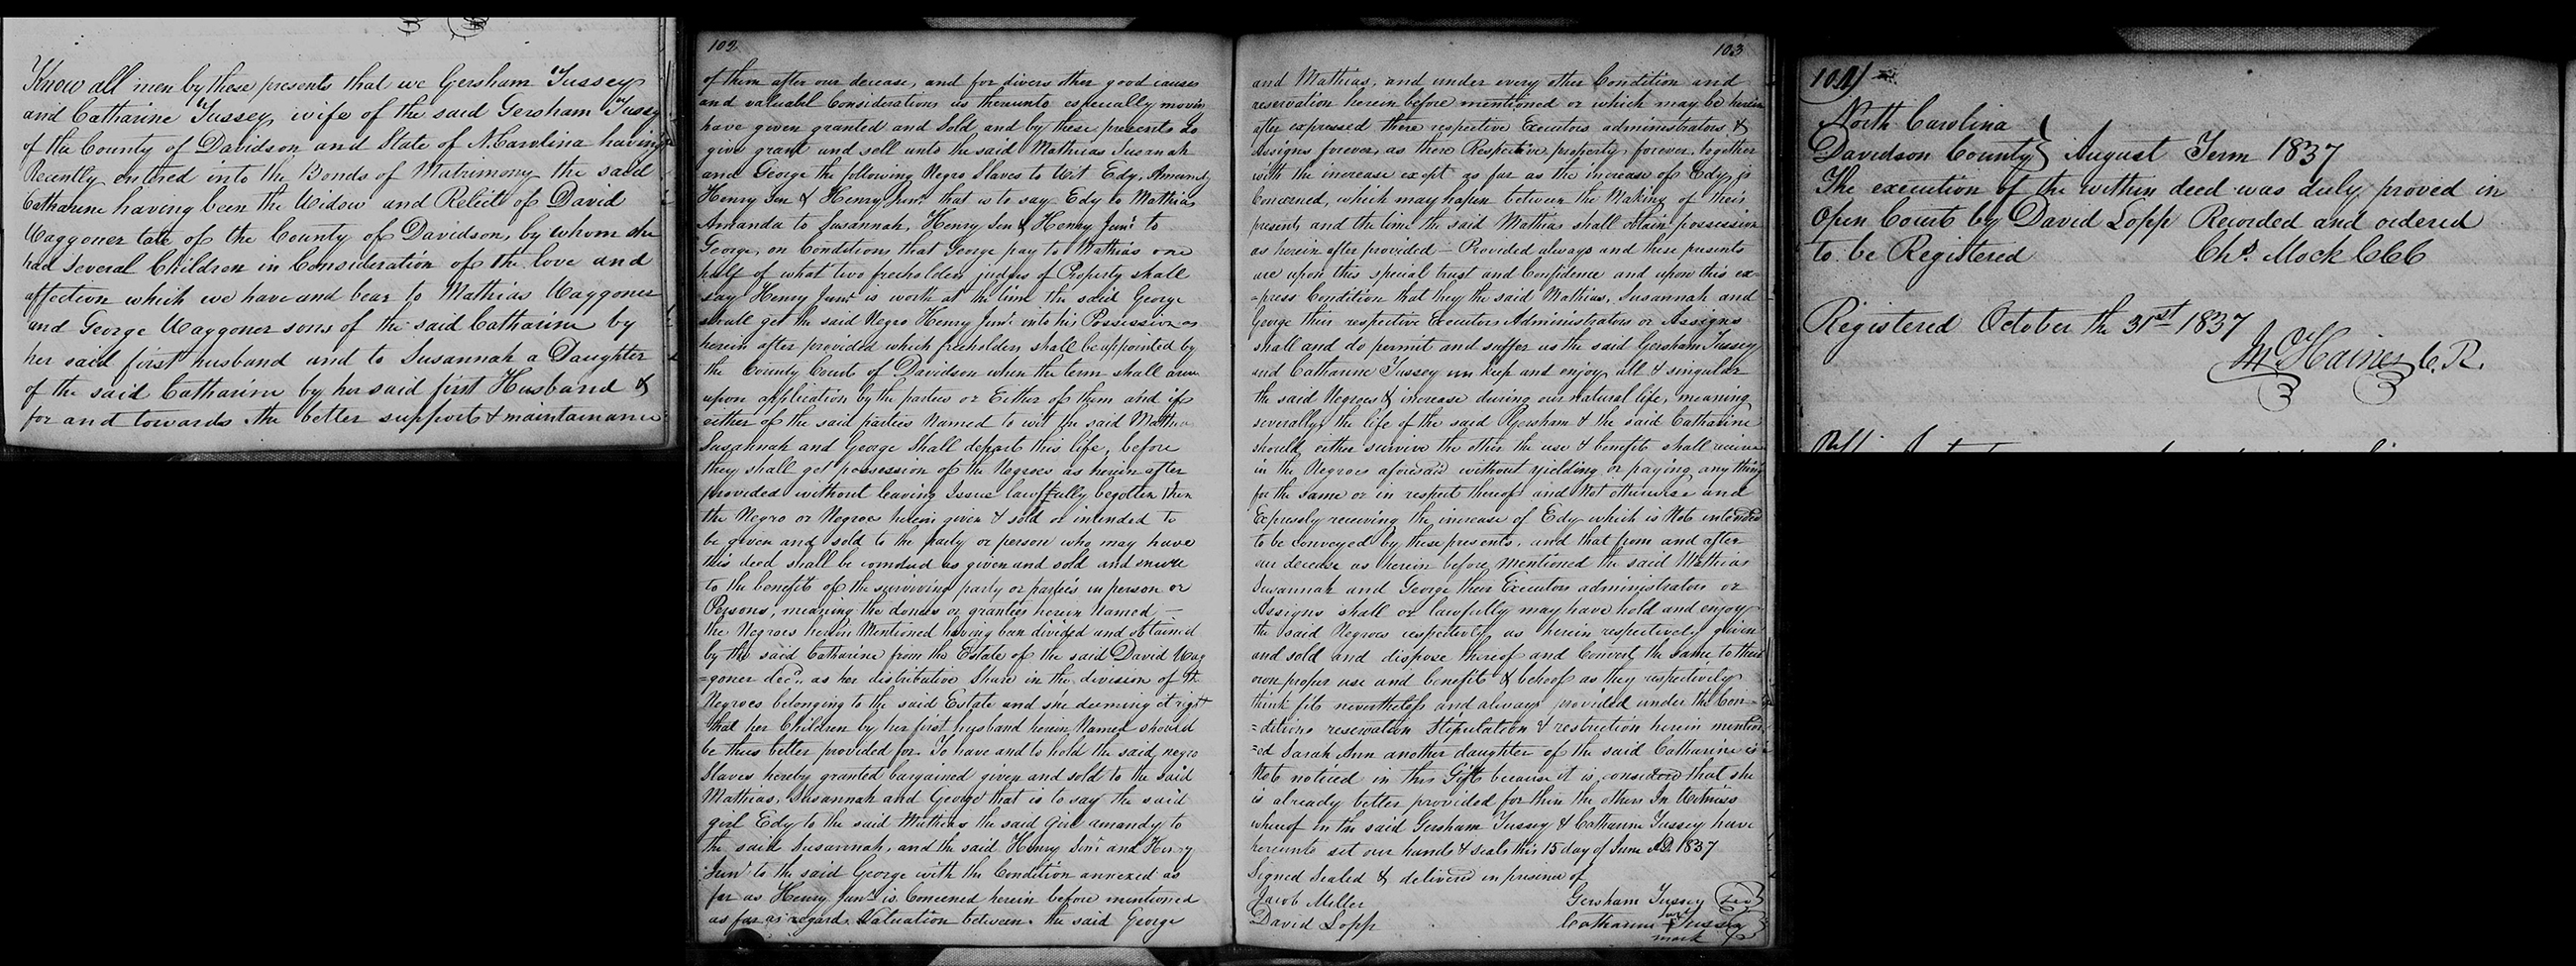 Know all men by these presents that we Gersham Tussey
and Catharine Tussey, wife of the said Gersham Tussey
of the County of Davidson and State of N. Carolina having
Recently entered into the Bonds of Matrimony the said
Catharine having been the Widow and Relict of David
Waggoner late of the County of Davidson, by whom she
had Several Children in Consideration of the love and
affection which we have and bear to Mathias Waggoner
and George Waggoner sons of the said Catharine by
her said first husband and to Susannah a Daughter
of the said Catharine by her said first Husband &
for and towards the better support & maintainance
102
of them after our decease, and for divers other good causes
and valuabl Considerations us thereunto especially moving
have given granted and Sold, and by these presents do
give grant and sell unto the said Mathias Susanah
and George the following Negro Slaves to Wit Edy, Amandy
Henry Sen & Henry Junr that is to say Edy to Mathias
Amanda to Susannah, Henry Sen & Henry Junr to
George, on Conditions that George pay to Mathias one
half of what two freeholders judges of Property shall
say Henry Junr is worth at the time the said George
shall get the said Negro Henry Junr into his Possession as
herein after provided which freeholders shall be appointed by
the County Court of Davidson when the term shall arive
upon application by the parties or Either of them and if
either of the said parties Named to wit the said Mathias
Susannah and George Shall depart this life, before
they shall get possession of the Negroes as herein after
provided without leaving Issue lawffully begotten then
the Negro or Negroes herein given & sold or intended to
be given and sold to the party or person who may have
this deed shall be construed as given and sold and enure
to the benefit of the surviving party or parties in person or
Persons, meaning the donees or grantees herein Named —
the Negroes herein Mentioned having been divided and obtained
by the said Catharine from the Estate of the said David Wag
=goner decd. as her distributive Share in the division of the
Negroes belonging to the said Estate and she deeming it right
that her Children by her first husband herein Named should
be thus better provided for. To have and to hold the said negro
Slaves hereby granted bargained given and sold to the said
Mathias, Susannah and George that is to say the said
girl Edy to the said Mathias the said Girl amandy to
the said Susannah, and the said Henry Senr and Henry
Junr to the said George with the Condition annexed as
far as Henry Junr is Concerned herein before mentioned
as far as regard Valuation between the said George
103
and Mathias, and under every other Condition and
reservation herein before mentioned or which may be herein
after expressed there respective Executors administrators &
assigns forever, as there Respective property, forever, together
with the increase except as far as the increase of Edy is
Concerned, which may hapen between the Making of these
presents, and the time the said Mathias shall obtain possession
as herein after provided — Provided always and these presents
are upon this special trust and Confidence and upon this ex=
=press Condition that they the said Mathias, Susannah and
George their respective Executors Administrators or Assigns
shall and do permit and suffer us the said Gersham Tussey
and Catharine Tussey to keep and enjoy all & singular
the said Negroes & increase during our natural life, meaning
severally, the life of the said Gersham & the said Catharine
should either survive the other the use & benefit shall
in the Negroes aforesaid without yielding or paying any thing
for the same or in respect thereof and Not otherwise and
Expressly reserving the increase of Edy which is Not intended
to be conveyed by these presents, and that from and after
our decease as herein before mentioned the said Mathias
Susannah and George their Executors administrators or
Assigns shall or lawfully may have hold and enjoy
the said Negroes respectively as herein respectively given
and sold and dispose thereof and Convert the same to their
own proper use and benefit & behoof as they respectively
think fit nevertheless and always provided under the Con=
=ditions reservation Stipulation & restriction herein mention
=ed Sarah Ann another daughter of the said Catharine is
Not noticed in this Gift because it is considered that she
is already better provided for then the others In Witness
whereof We the said Gersham Tussey & Catharine Tussey have
hereunto set our hands & seals this 15 day of June A.D. 1837
Signed Sealed & delivered in presence of
Jacob Miller Gersham Tussey
David Lopp Catharine + Tussey
mark
104
North Carolina
Davidson County } August Term 1837
The execution of the within deed was duly proved in
Open Court by David Lopp Recorded and ordered
to be Registered Chs. Mock CCC
Registered October the 31st 1837
M Haines C. R.